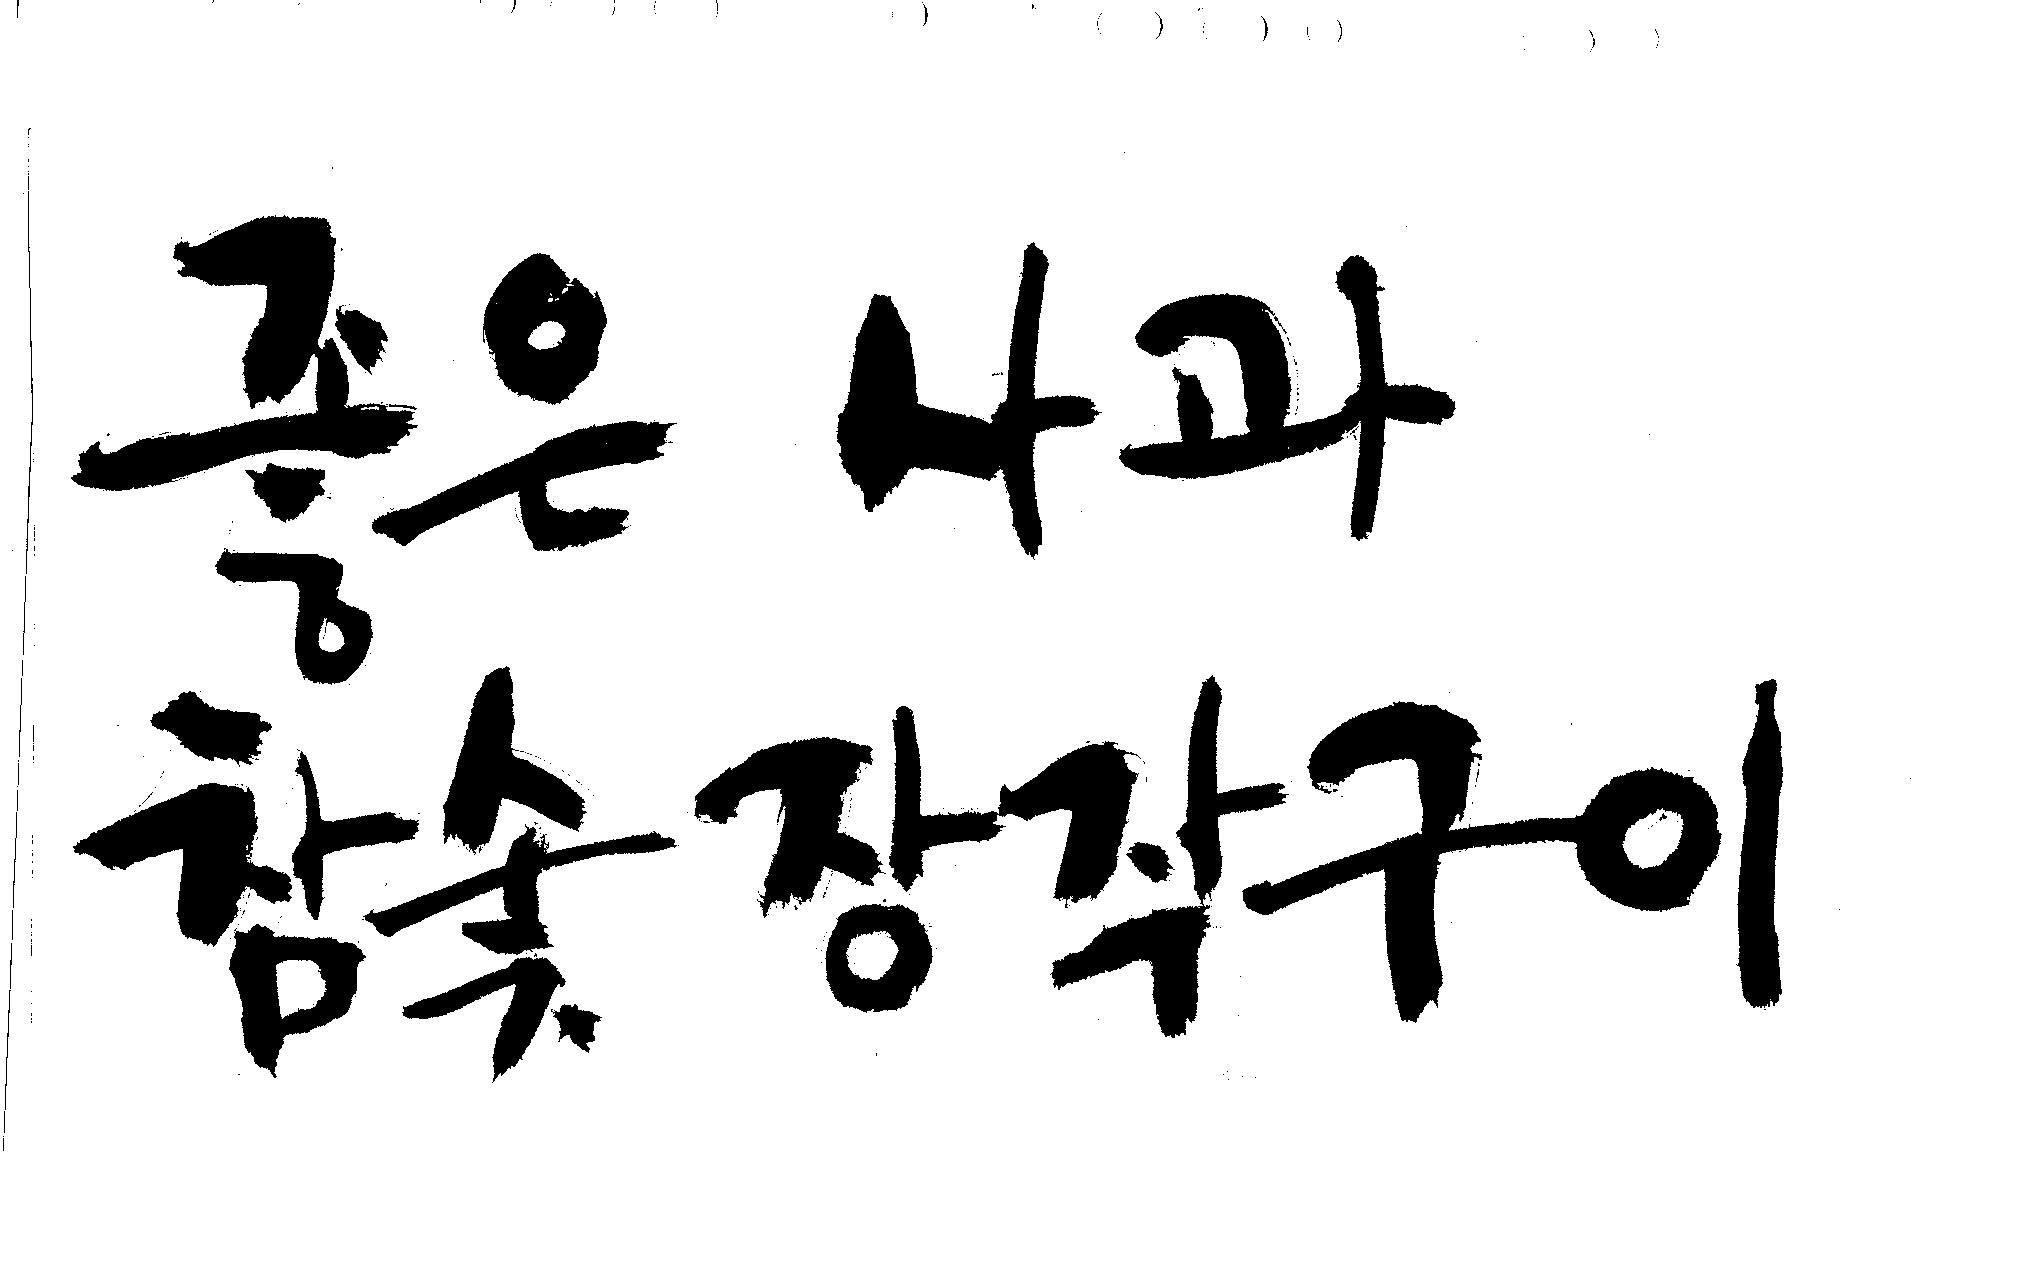 좋은 나과
참숯 장작구이